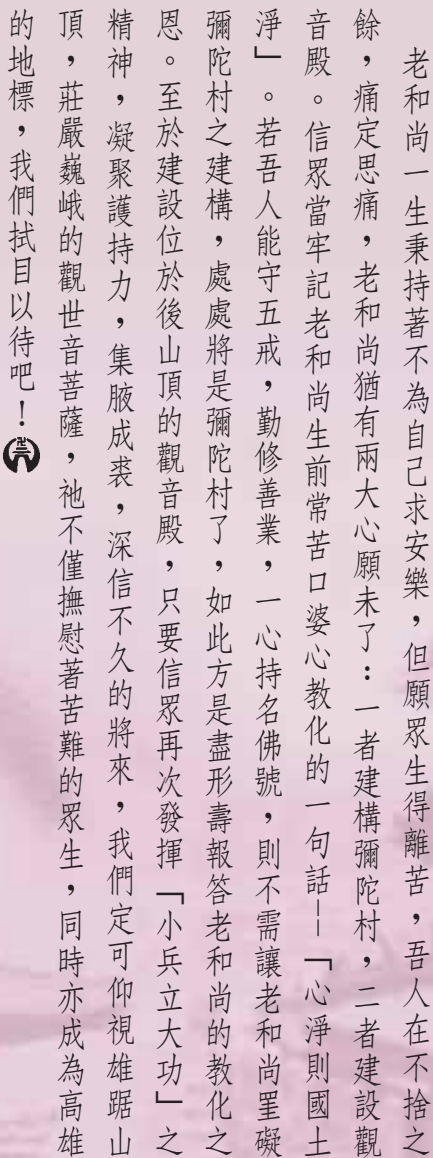 老和尚一生秉持著不為自己求安樂，但願眾生得離苦，吾人在不捨之
餘，痛定思痛，老和尚猶有兩大心願未了：一者建構彌陀村，二者建設觀
音殿。信眾當牢記老和尚生前常苦口婆心教化的一句話──「心淨則國土
淨」。若吾人能守五戒，勤修善業，一心持名佛號，則不需讓老和尚罣礙
彌陀村之建構，處處將是彌陀村了，如此方是盡形壽報答老和尚的教化之
恩。至於建設位於後山頂的觀音殿，只要信眾再次發揮「小兵立大功」之
精神，凝聚護持力，集腋成裘，深信不久的將來，我們定可仰視雄踞山
頂，莊嚴巍峨的觀世音菩薩，祂不僅撫慰著苦難的眾生，同時亦成為高雄
的地標，我們拭目以待吧！